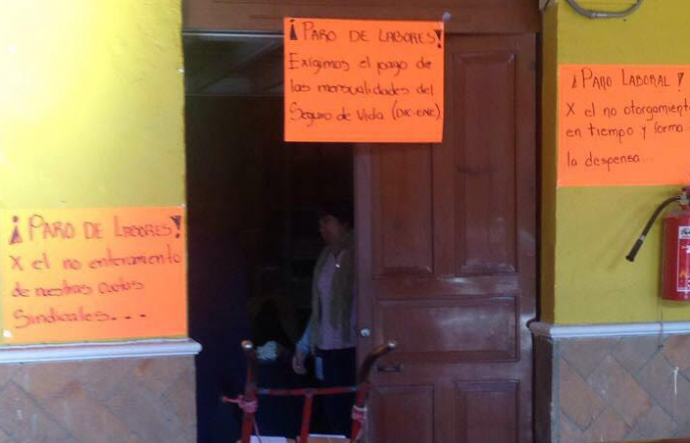 ¡PARO DE LABORES!
X el no enteramiento
de nuestras cuotas
Sindicales...
¡PARO DE LABORES!
Exigimos el pago de
las mensualidades del
Seguro de Vida (DIC-ENE)
¡PARO LABORAL!
X el no otorgamiento
en tiempo y forma
la despensa...